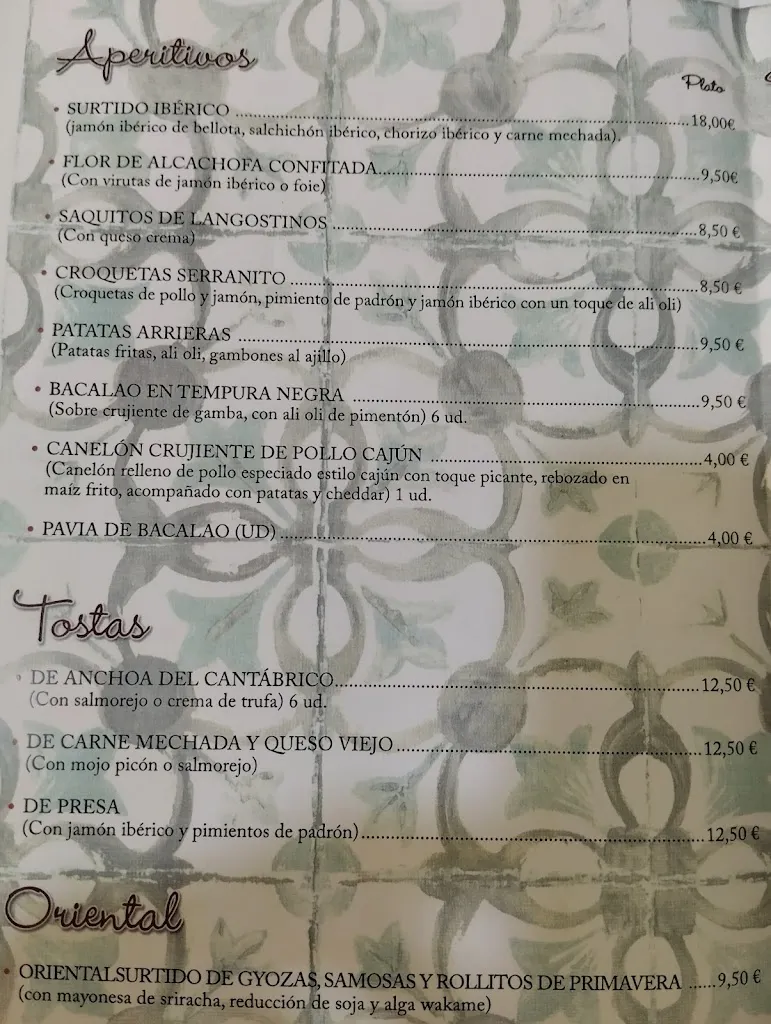 Aperitivos
Plato
• SURTIDO IBÉRICO ........18,00€
(jamón ibérico de bellota, salchichón ibérico, chorizo ibérico y carne mechada).
• FLOR DE ALCACHOFA CONFITADA........9,50€
(Con virutas de jamón ibérico o foie)
• SAQUITOS DE LANGOSTINOS ........8,50 €
(Con queso crema)
• CROQUETAS SERRANITO ........8,50 €
(Croquetas de pollo y jamón, pimiento de padrón y jamón ibérico con un toque de ali oli)
• PATATAS ARRIERAS ........9,50 €
(Patatas fritas, ali oli, gambones al ajillo)
• BACALAO EN TEMPURA NEGRA ........9,50 €
(Sobre crujiente de gamba, con ali oli de pimentón) 6 ud.
• CANELÓN CRUJIENTE DE POLLO CAJÚN ........4,00 €
(Canelón relleno de pollo especiado estilo cajún con toque picante, rebozado en
maíz frito, acompañado con patatas y cheddar) 1 ud.
• PAVIA DE BACALAO (UD)........4,00 €
Tostas
• DE ANCHOA DEL CANTÁBRICO........12,50 €
(Con salmorejo o crema de trufa) 6 ud.
• DE CARNE MECHADA Y QUESO VIEJO........12,50 €
(Con mojo picón o salmorejo)
• DE PRESA
(Con jamón ibérico y pimientos de padrón)........12,50 €
Oriental
• ORIENTALSURTIDO DE GYOZAS, SAMOSAS Y ROLLITOS DE PRIMAVERA ......9,50 €
(con mayonesa de sriracha, reducción de soja y alga wakame)